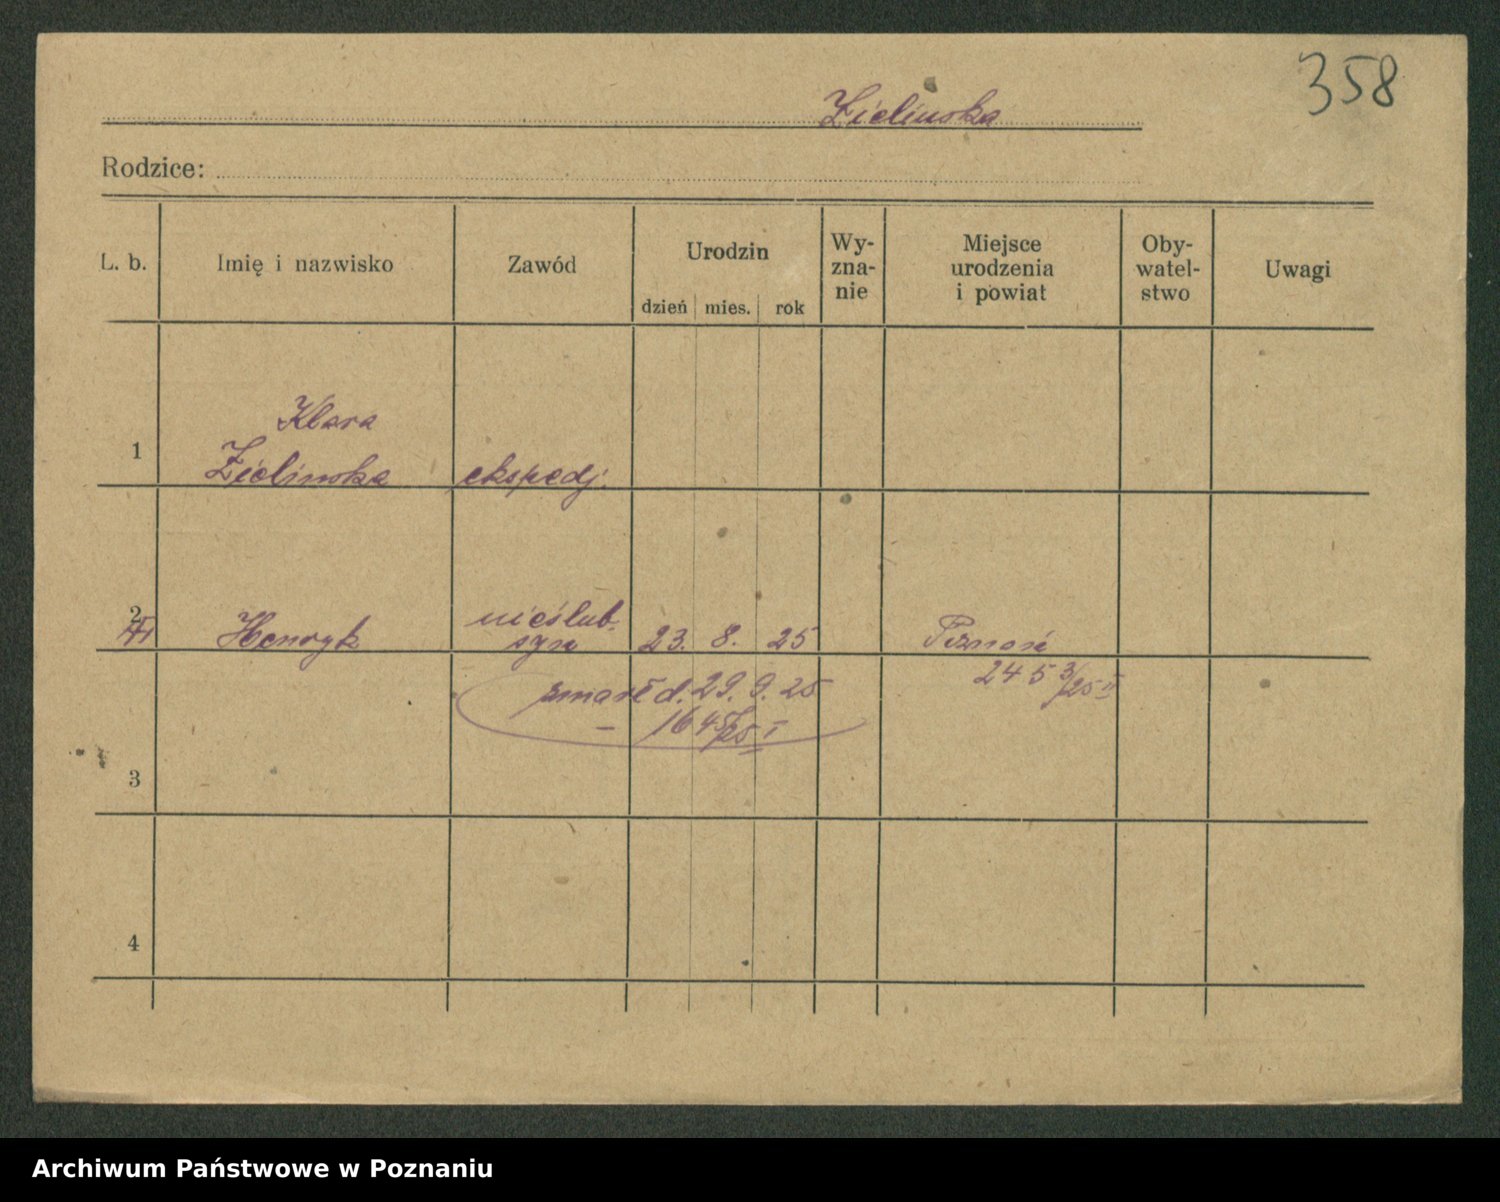 358
Zielinska
Rodzice:
L. b. Imię i nazwisko Zawód Urodzin dzień mies. rok Wy-zna-nie Miejsce urodzenia i powiat Oby-watel-stwo Uwagi
Klara
1 Zielinska ekspedj.
2 Henryk nieślub. syn 23. 8. 25 Poznań
245 3/25 II
zmarł d. 29. 9. 25
3
4
Archiwum Państwowe w Poznaniu